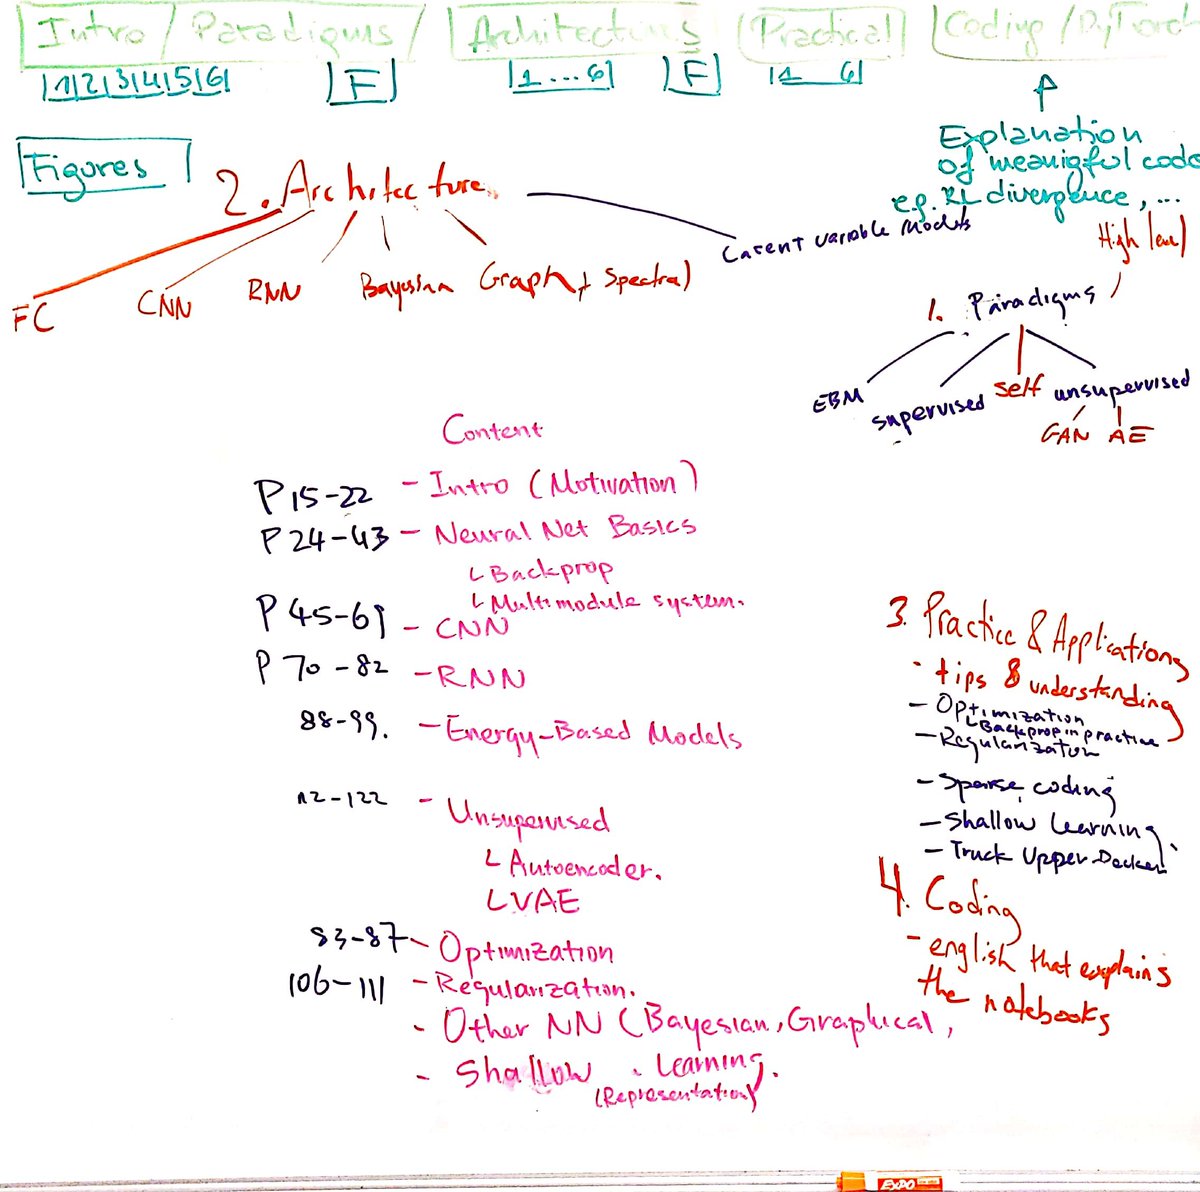 Intro / Paradigms / Architectures Practical Coding / PyTorch
1 2 3 4 5 6 F 1 ... 6 F 1 6
Figures
Explanation
of meanigful code
e.g. KL divergence, ...
2. Architecture
Latent variable Models
High level
FC CNN RNN Bayesian Graph + Spectral
1. Paradigms
EBM supervised self unsupervised
GAN AE
Content
P 15-22 - Intro (Motivation)
P 24-43 - Neural Net Basics
Backprop
Multimodule system.
P 45-69 - CNN
P 70-82 - RNN
88-99. - Energy-Based Models
112-122 - Unsupervised
Autoencoder.
VAE
83-87 - Optimization
106-111 - Regularization.
- Other NN (Bayesian, Graphical,
- Shallow . Learning.
(Representation)
3. Practice & Applications
· tips & understanding
- Optimization
Backprop in practice
- Regularization
- Sparse coding
- Shallow Learning
- Truck Upper-Decker
4. Coding
- english that explains
the notebooks
EXPO